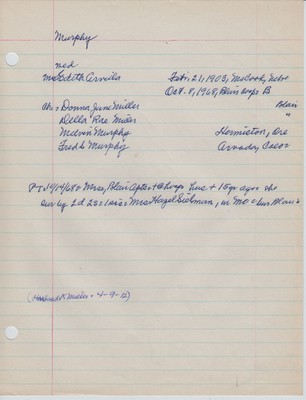 Murphy
ned
Mrs Edith Arvilla Feb. 21, 1903, McCook, Nebr
Oct. 8, 1968, Blair hosp B
Ch = Donna Jane Miller Blair
Della Rae Miller "
Melvin Murphy Hermiston, Ore
Fred L Murphy Arvada, Colo
P-T 10/14/68 = Mrs, Blair Apts + @ hosp here + 15 yr ago she
sur by 2 d 2 s = 1 sis = Mrs Hazel in Mo = bur Blair
Miller = 4-9-12)